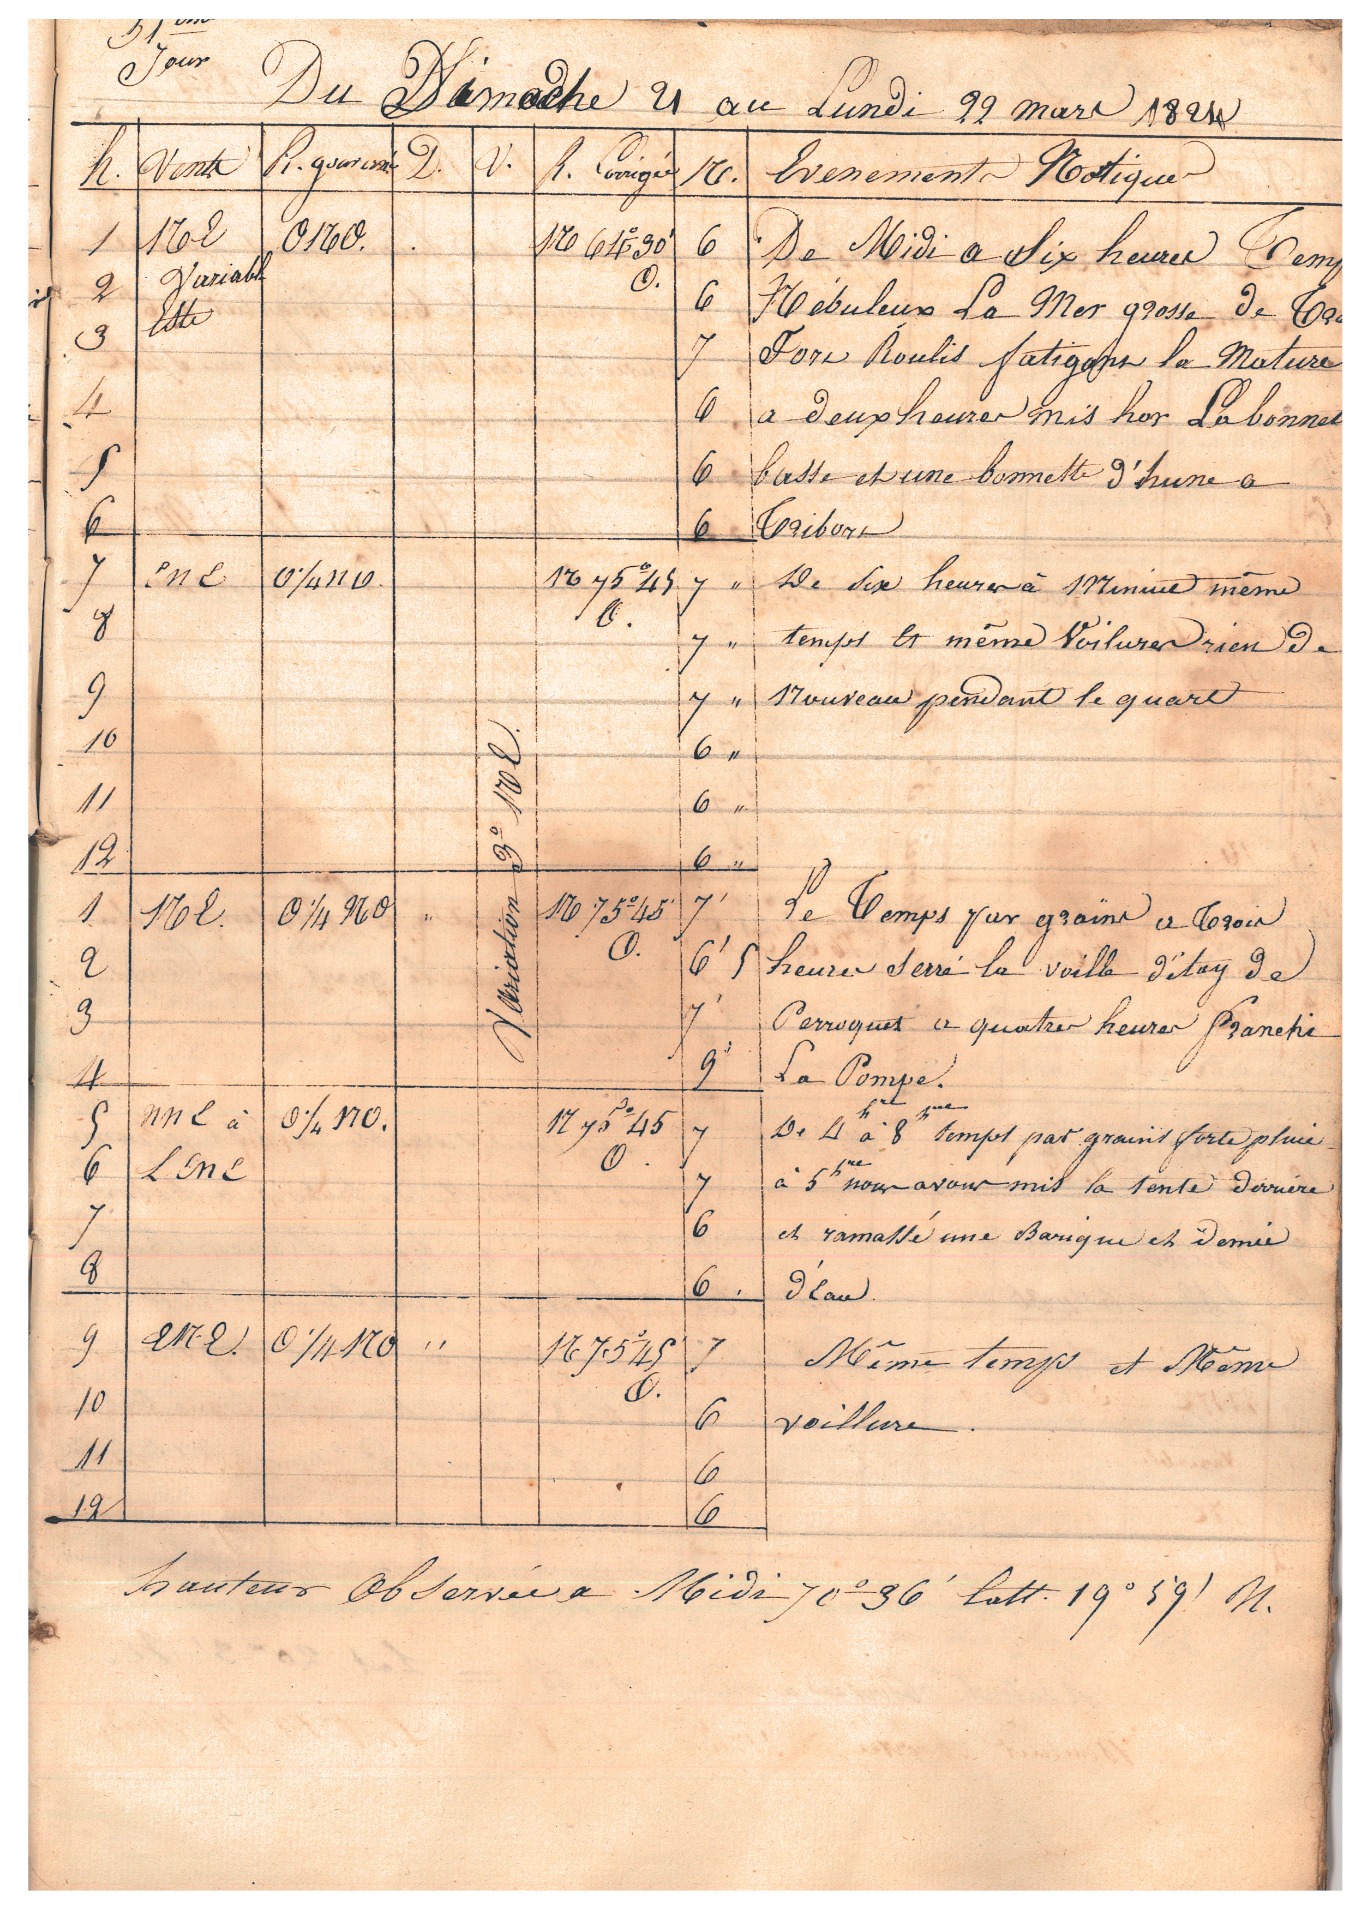 51eme
Jour
Du Dimache 21 au Lundi 22 mars 1824
h. Vents R. gouverné D. V. R. Corrigée N. Evenements Notiques
1 NE ONO. . N 64° 30' 6 De Midi a Six heures Temp
2 Variable O. 6 Nébuleux La Mer grosse de
3 Este 7 Fors Roulis fatigans la Mature
4 6 a deux heures mis hor La bonnet
5 6 basse et une bonnette d'hune a
6 6 Tribors
7 ENE O1/4NO. N 75° 45 7 " De Six heures à Minuit même
8 O. 7 " temps et même Voilures rien de
9 7 " Nouveau pendant le quart
10 6 "
11 6 "
12 6 "
Variation 3° NE.
1 NE. O1/4 NO " N 75° 45' 7' Le Temps par grains a Trois
2 O. 6' 5 heures Serré la voille d'étay de
3 7' Perroquet a quatres heures franchi
4 9' La Pompe.
5 NNE à O1/4 NO. N 75° 45 7 De 4 hres à 8 hres temps par grains forte pluie
6 L'ENE O. 7 à 5 hres nous avons mis la tente derriere
7 6 et ramassé une Barique et demie
8 6 . d'Eau.
9 ENE. O1/4 NO " N 75° 45' 7 Même temps et Même
10 O. 6 voillure.
11 6
12 6
hauteur Observée a Midi 70° 36' latt. 19° 59' N.